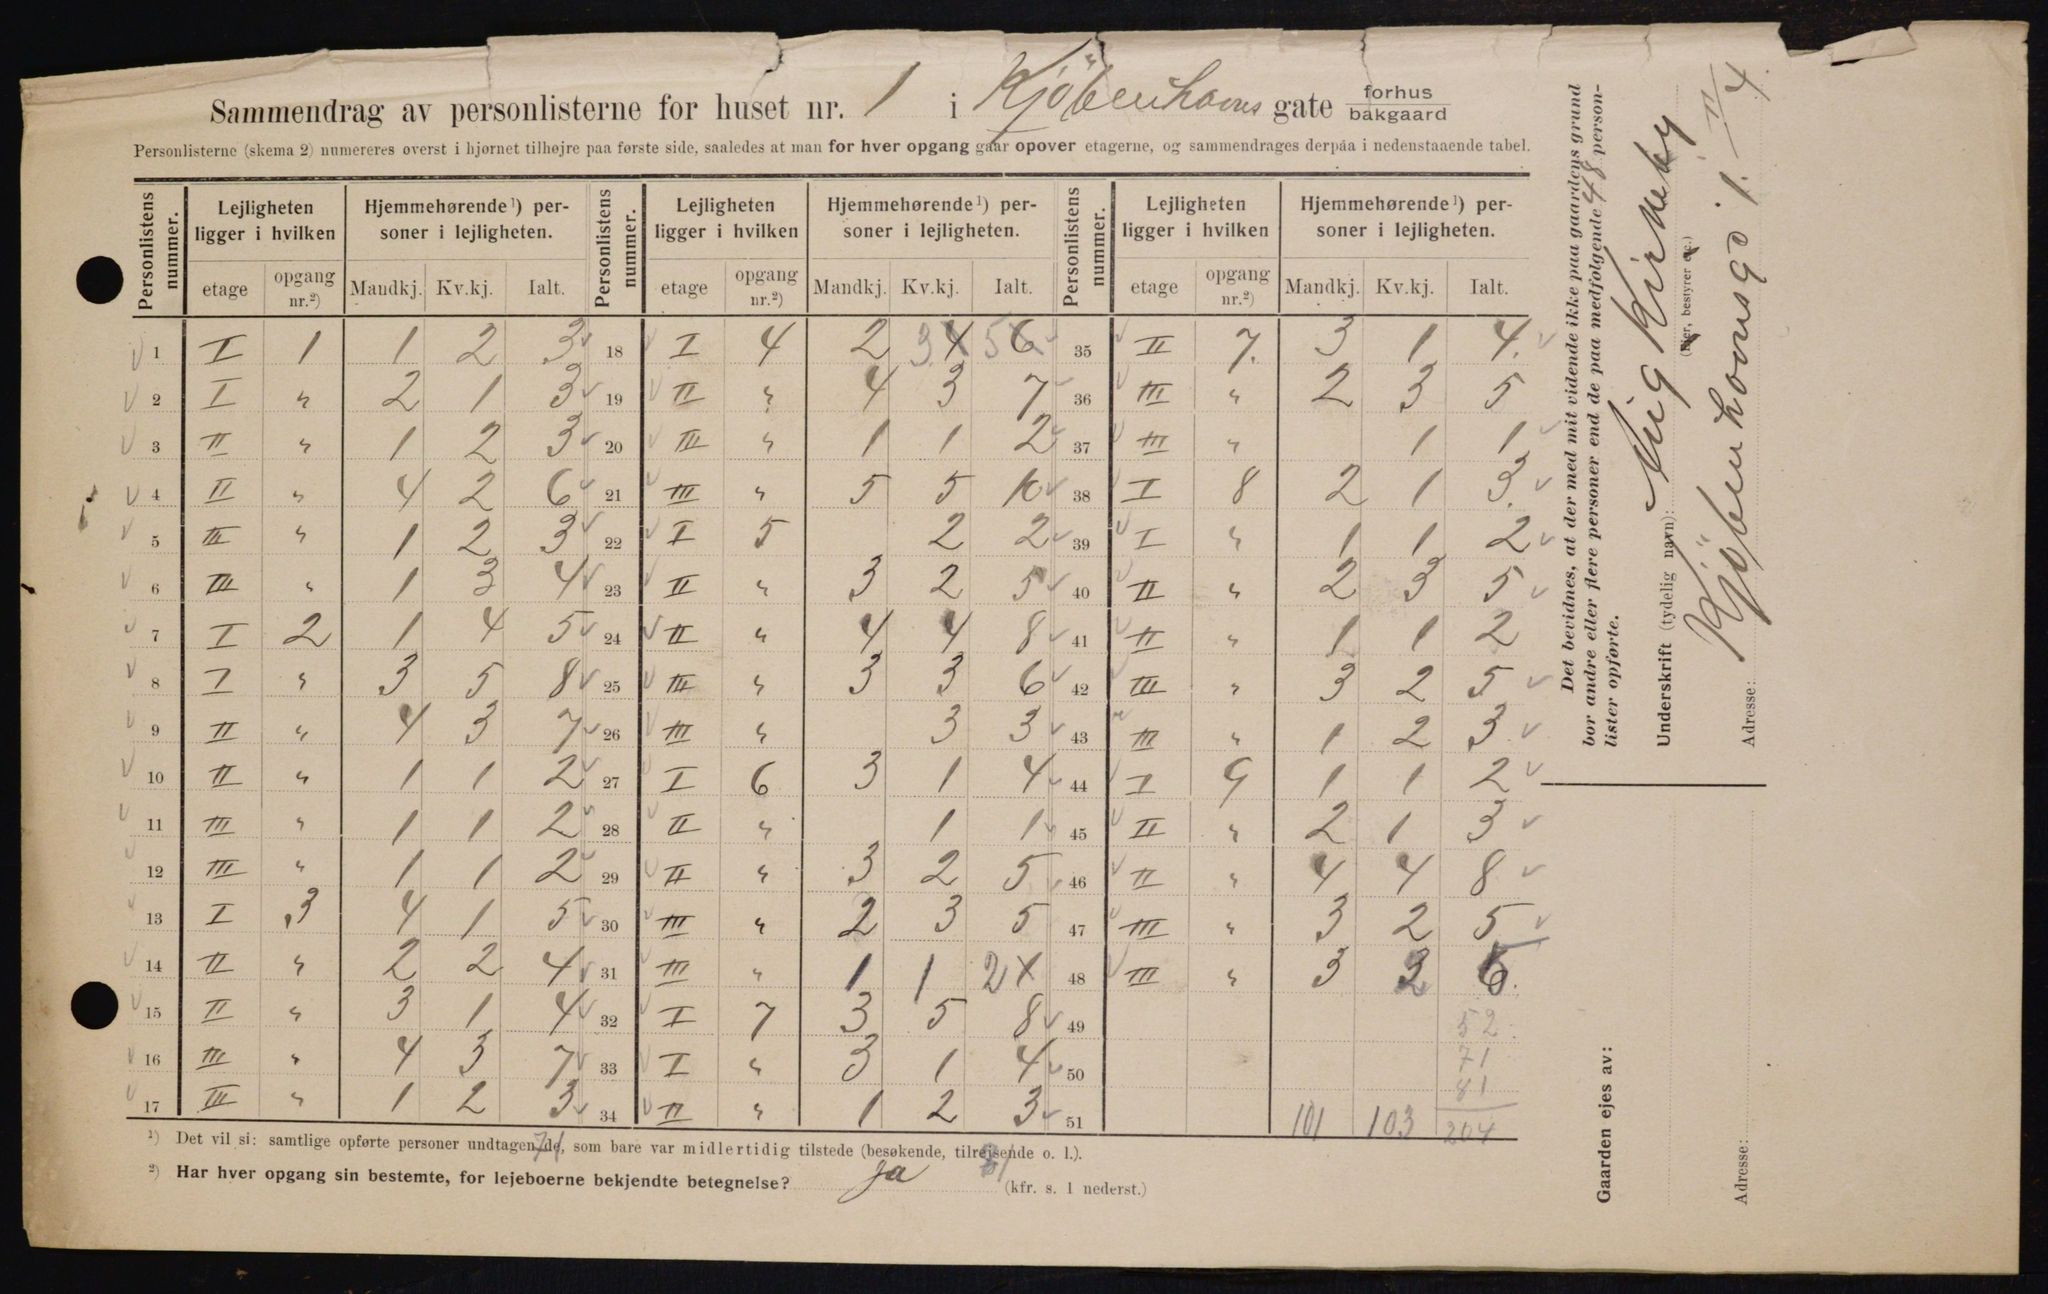 Sammendrag av personlisterne for huset nr. 1 i Kjöbenhavns gate forhus bakgaard
Personlisterne (skema 2) numereres øverst i hjørnet tilhøjre paa første side, saaledes at man for hver opgang gaar opover etagerne, og sammendrages derpaa i nedenstaaende tabel.
Personlistens nummer. Lejligheten ligger i hvilken Hjemmehørende¹) personer i lejligheten. Personlistens nummer. Lejligheten ligger i hvilken Hjemmehørende¹) personer i lejligheten. Personlistens nummer. Lejligheten ligger i hvilken Hjemmehørende¹) personer i lejligheten.
etage opgang nr.²) Mandkj. Kv.kj. Ialt. etage opgang nr.²) Mandkj. Kv.kj. Ialt. etage opgang nr.²) Mandkj. Kv.kj. Ialt.
1 I 1 1 2 3 18 I 4 2 3 4 5 6 35 II 7. 3 1 4.
2 I " 2 1 3 19 II " 4 3 7 36 III " 2 3 5
3 II " 1 2 3 20 III " 1 1 2 37 III " 1 1
4 II " 4 2 6 21 III " 5 5 10 38 I 8 2 1 3
5 III " 1 2 3 22 I 5 2 2 39 I " 1 1 2
6 III " 1 3 4 23 II " 3 2 5 40 II " 2 3 5
7 I 2 1 4 5 24 II " 4 4 8 41 II " 1 1 2
8 I " 3 5 8 25 III " 3 3 6 42 III " 3 2 5
9 II " 4 3 7 26 III " 3 3 43 III " 1 2 3
10 II " 1 1 2 27 I 6 3 1 4 44 I 9 1 1 2
11 III " 1 1 2 28 II " 1 1 45 II " 2 1 3
12 III " 1 1 2 29 II " 3 2 5 46 II " 4 4 8
13 I 3 4 1 5 30 III " 2 3 5 47 III " 3 2 5
14 II " 2 2 4 31 III " 1 1 2 1 48 III " 3 3 6.
15 II " 3 1 4 32 I 7 3 5 8 49 52
16 III " 4 3 7 33 I " 3 1 4 50 71
81
17 III " 1 2 3 34 II " 1 2 3 51 101 103 204
¹) Det vil si: samtlige opførte personer undtagen de, som bare var midlertidig tilstede (besøkende, tilrejsende o. l.).
71 81
²) Har hver opgang sin bestemte, for lejeboerne bekjendte betegnelse? ja (kfr. s. 1 nederst.)
Det bevidnes, at der med mit vidende ikke paa gaardens grund
bor andre eller flere personer end de paa medfølgende 48 person-
lister opførte.
Underskrift (tydelig navn): Aug Kirkeby
(Ejer, bestyrer etc.)
Adresse: Kjöbenhavnsgd 1. II/4.
Gaarden ejes av:
Adresse: